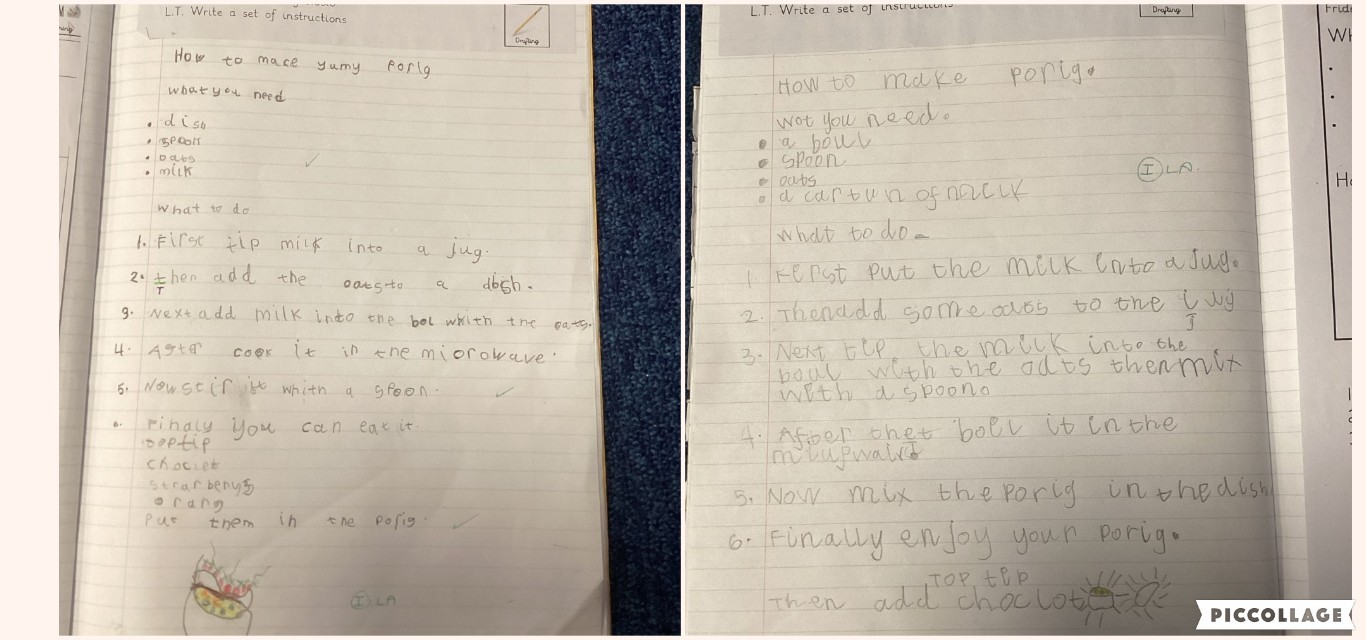 L.T. Write a set of instructions
Drafting
How to mace yumy Porig
what you need
• dish
• spoon
• oats
• milk
What to do
1. First tip milk into a jug.
2. then add the oats to a dish.
T
3. Next add milk into the bol whith the oats.
4. After cook it in the microwave.
5. Now stir it whith a spoon.
6. Finaly you can eat it.
toptip
choclet
strarberys
orang
Put them in the porig.
I LA
L.T. Write a set of instructions
Drafting
How to make porig.
wot you need.
• a boul
• spoon
• oats
• a cartun of milk
I LA.
What to do
1. Ferst put the milk into a Jug.
2. Then add some oats to the jug
J
3. Next tip the milk into the
boul with the oats then mix
with a spoon.
4. After thet boil it in the
5. Now mix the porig in the dish
6. Finally enjoy your porig.
TOP tip
Then add choclot
PICCOLLAGE